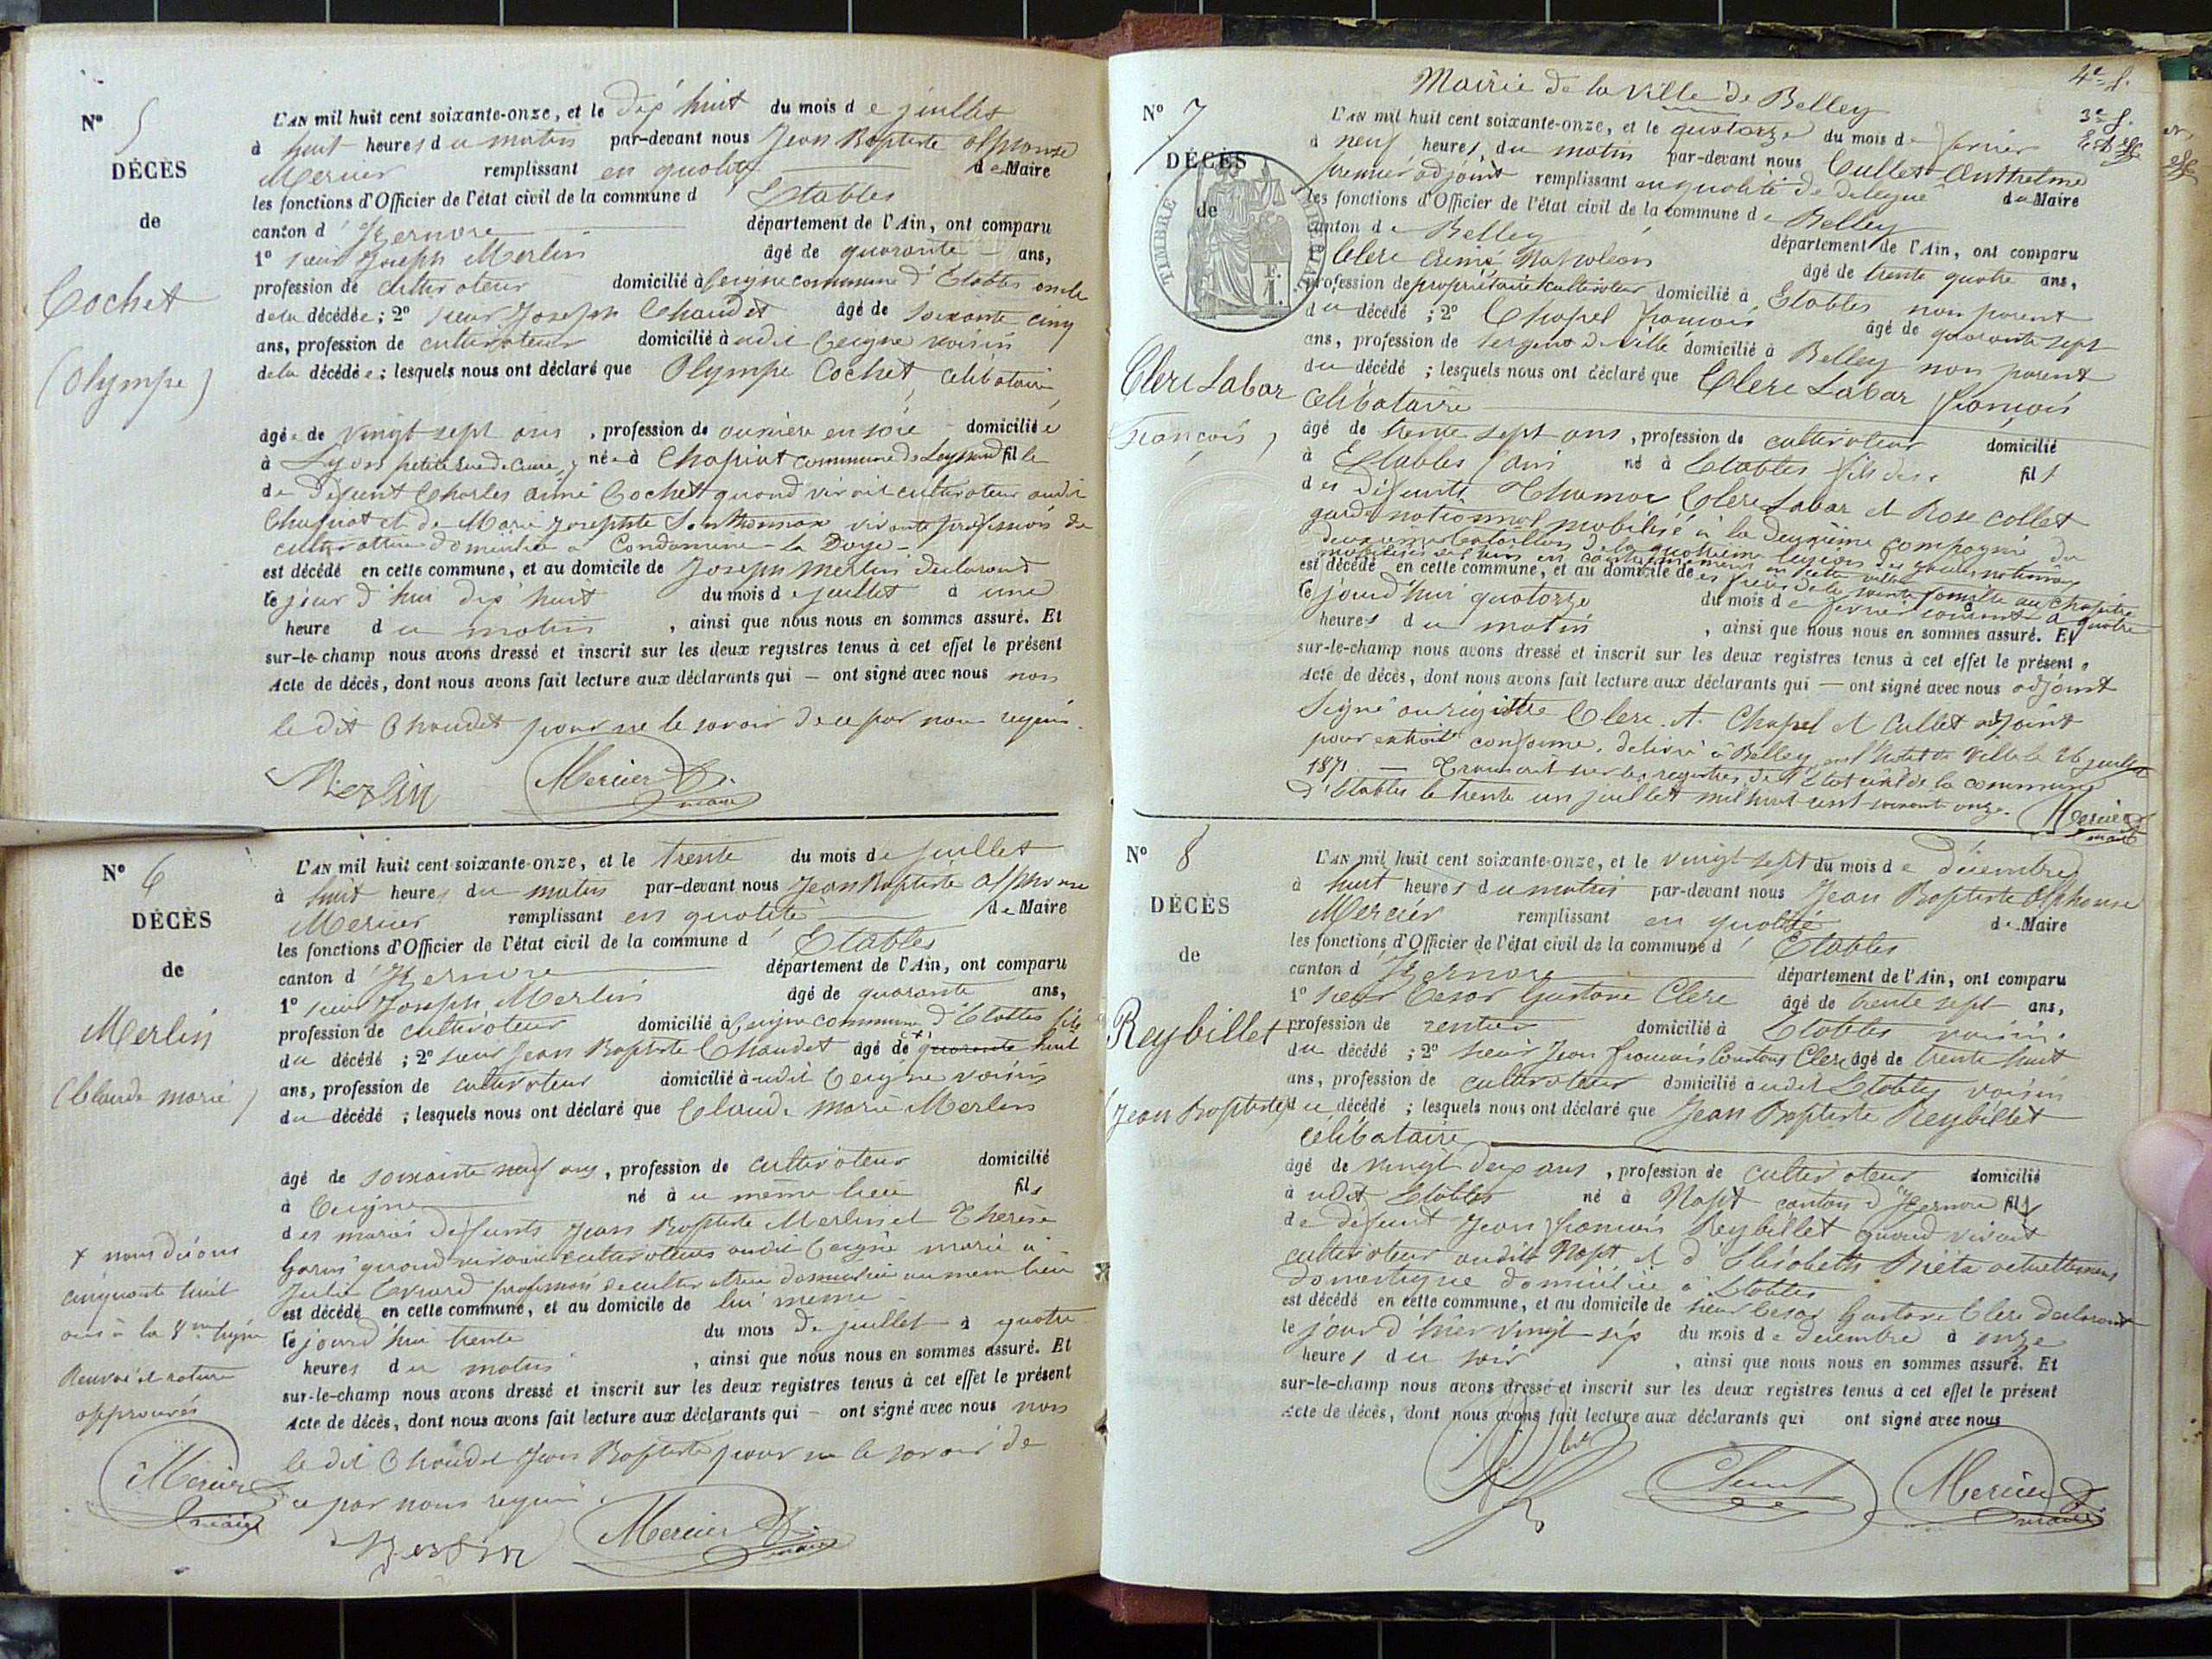 N° 5
DÉCÈS
de
Cochet
(Olympe)
L'AN mil huit cent soixante-onze, et le dix huit du mois de juillet
à huit heures du matin par-devant nous Jean Baptiste Alphonse
Mercier remplissant en qualité de Maire
les fonctions d'Officier de l'état civil de la commune d'Etables
canton d'Izernore département de l'Ain, ont comparu
1° sieur Joseph Merlin âgé de quarante ans,
profession de cultivateur domicilié à Ceigne commune d'Etables oncle
de la décédée ; 2° sieur Joseph Chaudet âgé de soixante cinq
ans, profession de cultivateur domicilié à udit Ceigne voisin
de la décédée ; lesquels nous ont déclaré que Olympe Cochet, célibataire,
âgée de vingt sept ans, profession de ouvrière en soie domiciliée
à Lyon petite rue de Cuire, née à Chapiat commune de Leyssard fille
de défunt Charles aimé Cochet quand vivait cultivateur audit
Chapiat et de Marie Josephte vivante profession de
cultivatrice domiciliée à Condamine-la Doye-
est décédé en cette commune, et au domicile de Joseph Merlin déclarant
le jour d'hui dix huit du mois de juillet à une
heure du matin, ainsi que nous nous en sommes assuré. Et
sur-le-champ nous avons dressé et inscrit sur les deux registres tenus à cet effet le présent
Acte de décès, dont nous avons fait lecture aux déclarants qui — ont signé avec nous non
le dit Chaudet pour ne le savoir de ce par nous requis.
Merlin Mercier maire
N° 6
DÉCÈS
de
Merlin
(Claude marie)
L'AN mil huit cent soixante-onze, et le trente du mois de juillet
à huit heures du matin par-devant nous Jean Baptiste Alphonse
Mercier remplissant en qualité de Maire
les fonctions d'Officier de l'état civil de la commune d'Etables
canton d'Izernore département de l'Ain, ont comparu
1° sieur Joseph Merlin âgé de quarante ans,
profession de cultivateur domicilié à Ceigne commune d'Etables fils
du décédé ; 2° sieur Jean Baptiste Chaudet âgé de quarante huit
ans, profession de cultivateur domicilié à udit Ceigne voisin
du décédé ; lesquels nous ont déclaré que Claude marie Merlin
âgé de soixante neuf ans, profession de cultivateur domicilié
à Ceigne né à u même lieu fils
des mariés défunts Jean Baptiste Merlin et Thérèse
quand vivaient cultivateurs audit Ceigne marié à
Julie profession de cultivatrice domiciliée au même lieu
est décédé en cette commune, et au domicile de lui même
le jourd'hui trente du mois de juillet à quatre
heures du matin, ainsi que nous nous en sommes assuré. Et
sur-le-champ nous avons dressé et inscrit sur les deux registres tenus à cet effet le présent
Acte de décès, dont nous avons fait lecture aux déclarants qui — ont signé avec nous non
le dit Chaudet Jean Baptiste pour ne le savoir de
ce par nous requis
Merlin Mercier maire
x nous disons
cinquante huit
ans à la 8me ligne
Renvoi et rature
approuvés
Mercier
maire
Mairie de la Ville de Belley
4e f.
3e f.
N° 7
DÉCÈS
de
TIMBRE IMPERIAL
Clerc Labar
François
L'AN mil huit cent soixante-onze, et le quatorze du mois de février
à neuf heures du matin par-devant nous Cullet Anthelme
premier adjoint remplissant en qualité de délégué du Maire
les fonctions d'Officier de l'état civil de la commune de Belley
canton de Belley département de l'Ain, ont comparu
Clerc Aimé Napoléon âgé de trente quatre ans,
profession de propriétaire cultivateur domicilié à Etables non parent
du décédé ; 2° Chapel françois âgé de quarante sept
ans, profession de sergent de ville domicilié à Belley non parent
du décédé ; lesquels nous ont déclaré que Clerc Labar françois
célibataire
âgé de trente sept ans, profession de cultivateur domicilié
à Etables (ain né à Etables fils
des défunts Thamar Clerc Labar et Rose Collet
garde national mobilisé à la deuxième compagnie du
deuxième bataillon de la quatrième légion des gardes nationaux
mobilisés de l'ain en cantonnement en cette ville
est décédé en cette commune, et au domicile des frères de la sainte famille au chapitre
le jourd'hui quatorze du mois de février courant à quatre
heures du matin, ainsi que nous nous en sommes assuré. Et
sur-le-champ nous avons dressé et inscrit sur les deux registres tenus à cet effet le présent
Acte de décès, dont nous avons fait lecture aux déclarants qui — ont signé avec nous adjoint
Signé au registre Clerc. A. Chapel et Cullet adjoint
pour extrait conforme, délivré à Belley en l'hotel de Ville le 26 juillet
1871. — Transcrit sur les registres de l'Etat civil de la commune
d'Etables le trente un juillet mil huit cent soixante onze. Mercier
maire
N° 8
DÉCÈS
de
Reybillet
(Jean Baptiste)
L'AN mil huit cent soixante-onze, et le vingt sept du mois de décembre
à huit heures du matin par-devant nous Jean Baptiste Alphonse
Mercier remplissant en qualité de Maire
les fonctions d'Officier de l'état civil de la commune d'Etables
canton d'Izernore département de l'Ain, ont comparu
1° sieur Cesar Gustave Clerc âgé de trente sept ans,
profession de rentier domicilié à Etables voisin
du décédé ; 2° sieur Jean françois Constant Clerc âgé de trente huit
ans, profession de cultivateur domicilié à udit Etables voisin
du décédé ; lesquels nous ont déclaré que Jean Baptiste Reybillet
célibataire
âgé de vingt deux ans, profession de cultivateur domicilié
à udit Etables né à Napt canton d'Izernore fils
de défunt Jean françois Reybillet quand vivait
cultivateur audit Napt et d'Elisabeth Piéta actuellement
domestique domiciliée à Etables
est décédé en cette commune, et au domicile de sieur Cesar Gustave Clerc déclarant
le jour d'hier vingt six du mois de décembre à onze
heures du soir, ainsi que nous nous en sommes assuré. Et
sur-le-champ nous avons dressé et inscrit sur les deux registres tenus à cet effet le présent
Acte de décès, dont nous avons fait lecture aux déclarants qui ont signé avec nous
Mercier maire